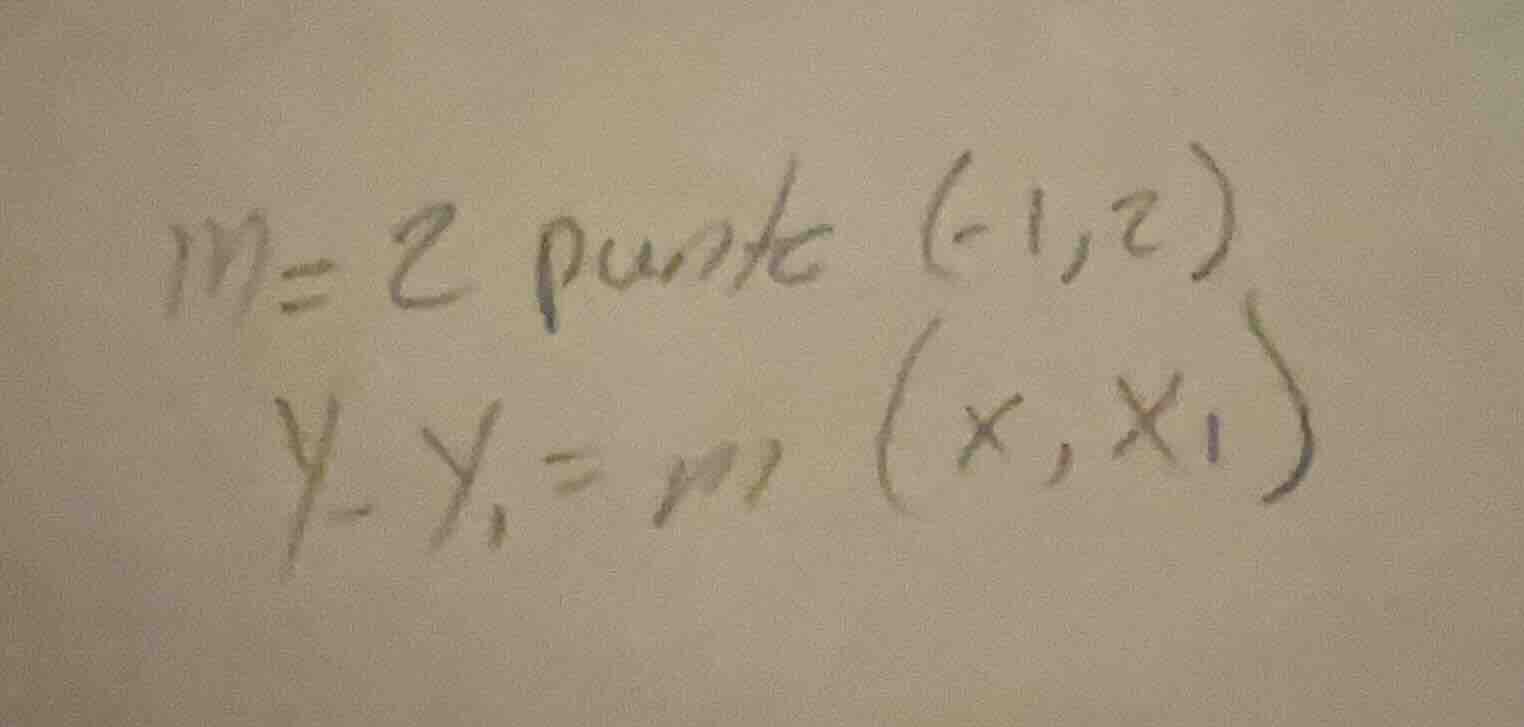 m = 2 punto (-1, 2)
y - y₁ = m (x, x₁)